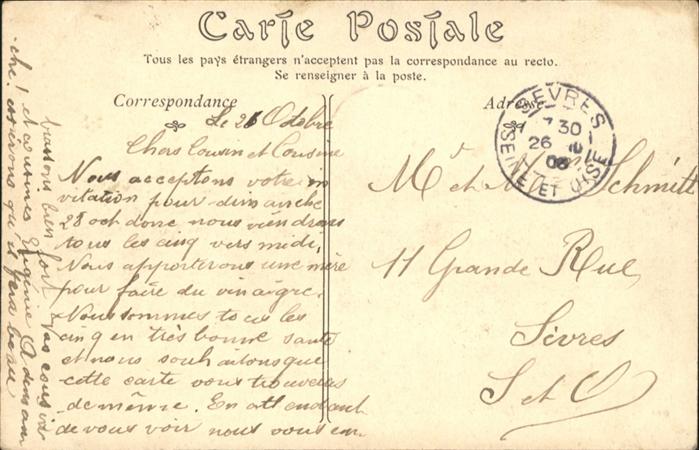 Carte Postale
Tous les pays étrangers n'acceptent pas la correspondance au recto.
Se renseigner à la poste.
Correspondance
Adresse
Le 26 Octobre
Chers Cousin et Cousine
Nous acceptons votre in
vitation pour dimanche
28 oct donc nous viendrons
tous les cinq vers midi,
Nous apporterons une mère
pour faire du vinaigre.
Nous sommes tous les
cinq en très bonne santé
et nous souhaitons que
cette carte vous trouve
de même. En attendant
de vous voir nous vous em-
brassons bien fort Vos cousin
et cousines Eugénie A diman
-che! espérons qu'il fera beau
SEVRES
7 30
26
SEINE ET OISE
Mr et Mme Schmitt
11 Grande Rue
Sèvres
S et O